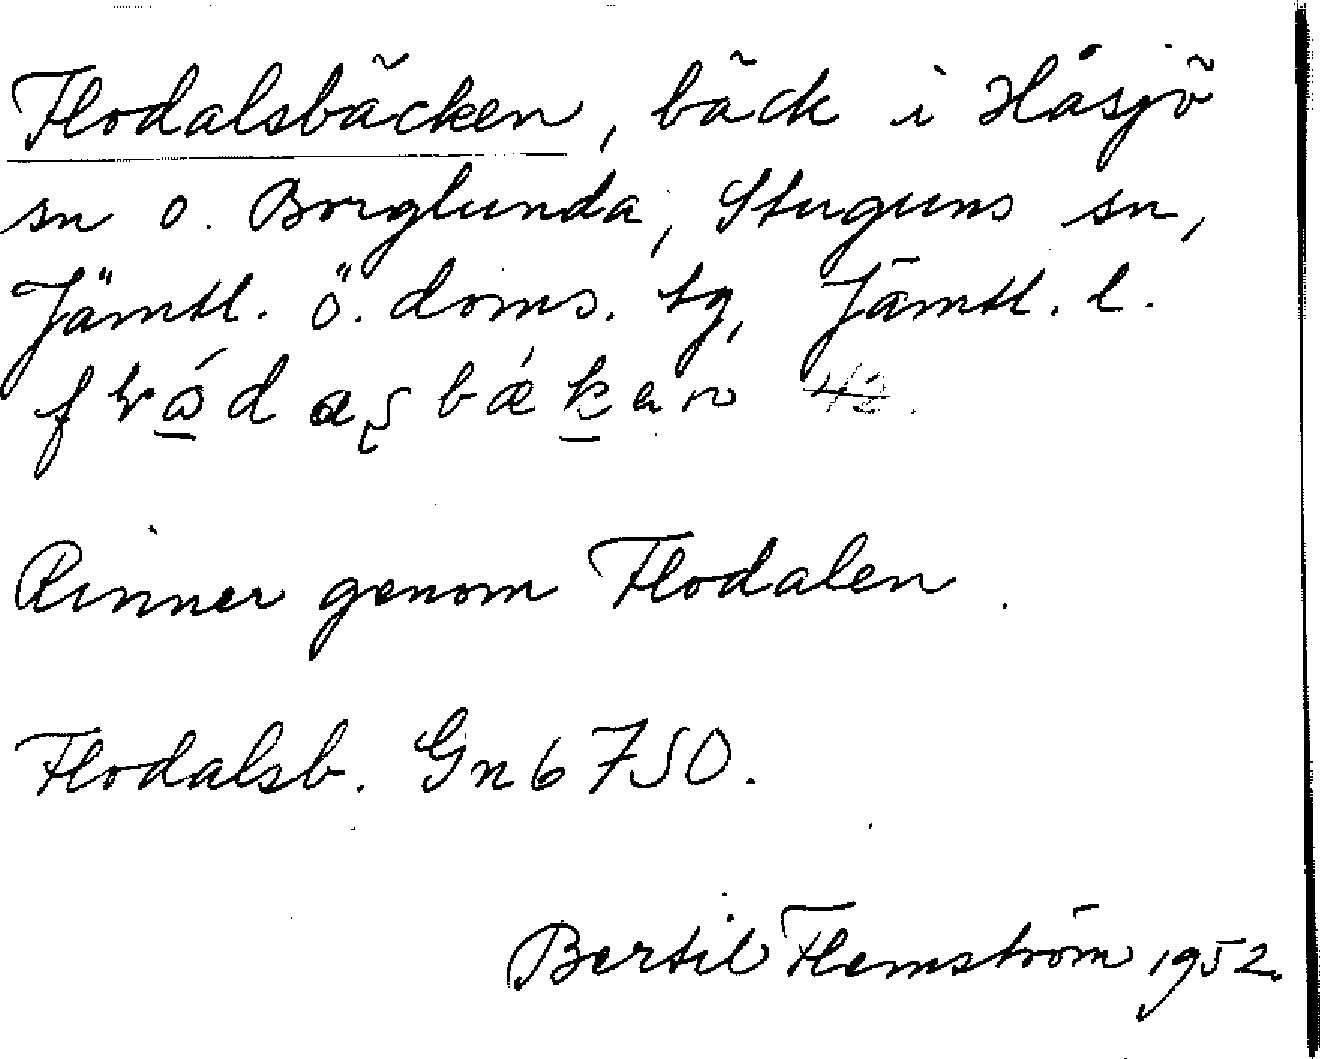 Flodalsbäcken, bäck i Håsjö
sn o. Borglunda, Stuguns sn,
Jämtl. ö. doms. tg, Jämtl. l.
Rinner genom Flodalen.
Flodalsb. Gn 6750.
Bertil Flemström 1952.